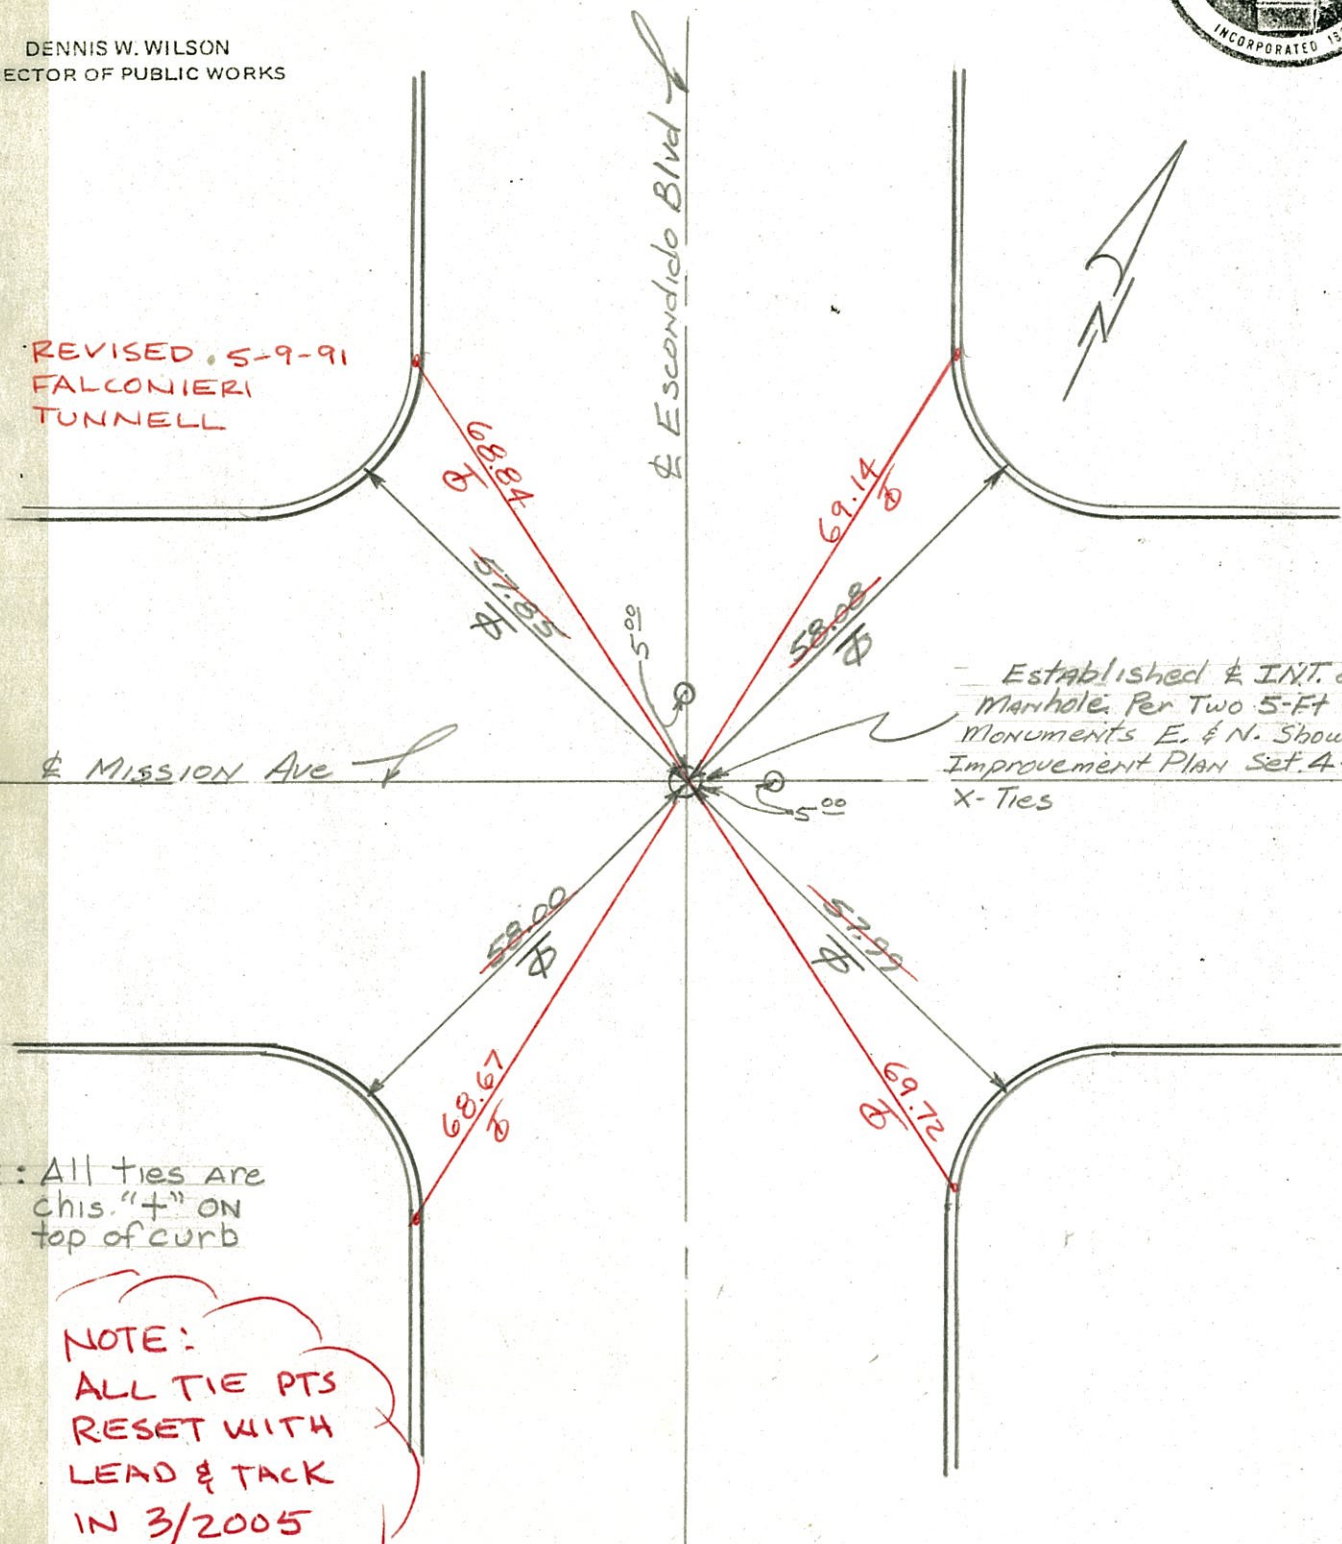 DENNIS W. WILSON
ECTOR OF PUBLIC WORKS
INCORPORATED
℄ Escondido Blvd
N
REVISED 5-9-91
FALCONIERI
TUNNELL
68.84
69.14
57.85
58.08
5 00
Established ℄ INT.
Manhole Per Two 5-Ft
Monuments E. & N. Show
Improvement Plan Set. 4
X-Ties
℄ Mission Ave
5 00
58.00
57.99
68.67
69.72
: All ties are
chis. "+" on
top of curb
NOTE:
ALL TIE PTS
RESET WITH
LEAD & TACK
IN 3/2005